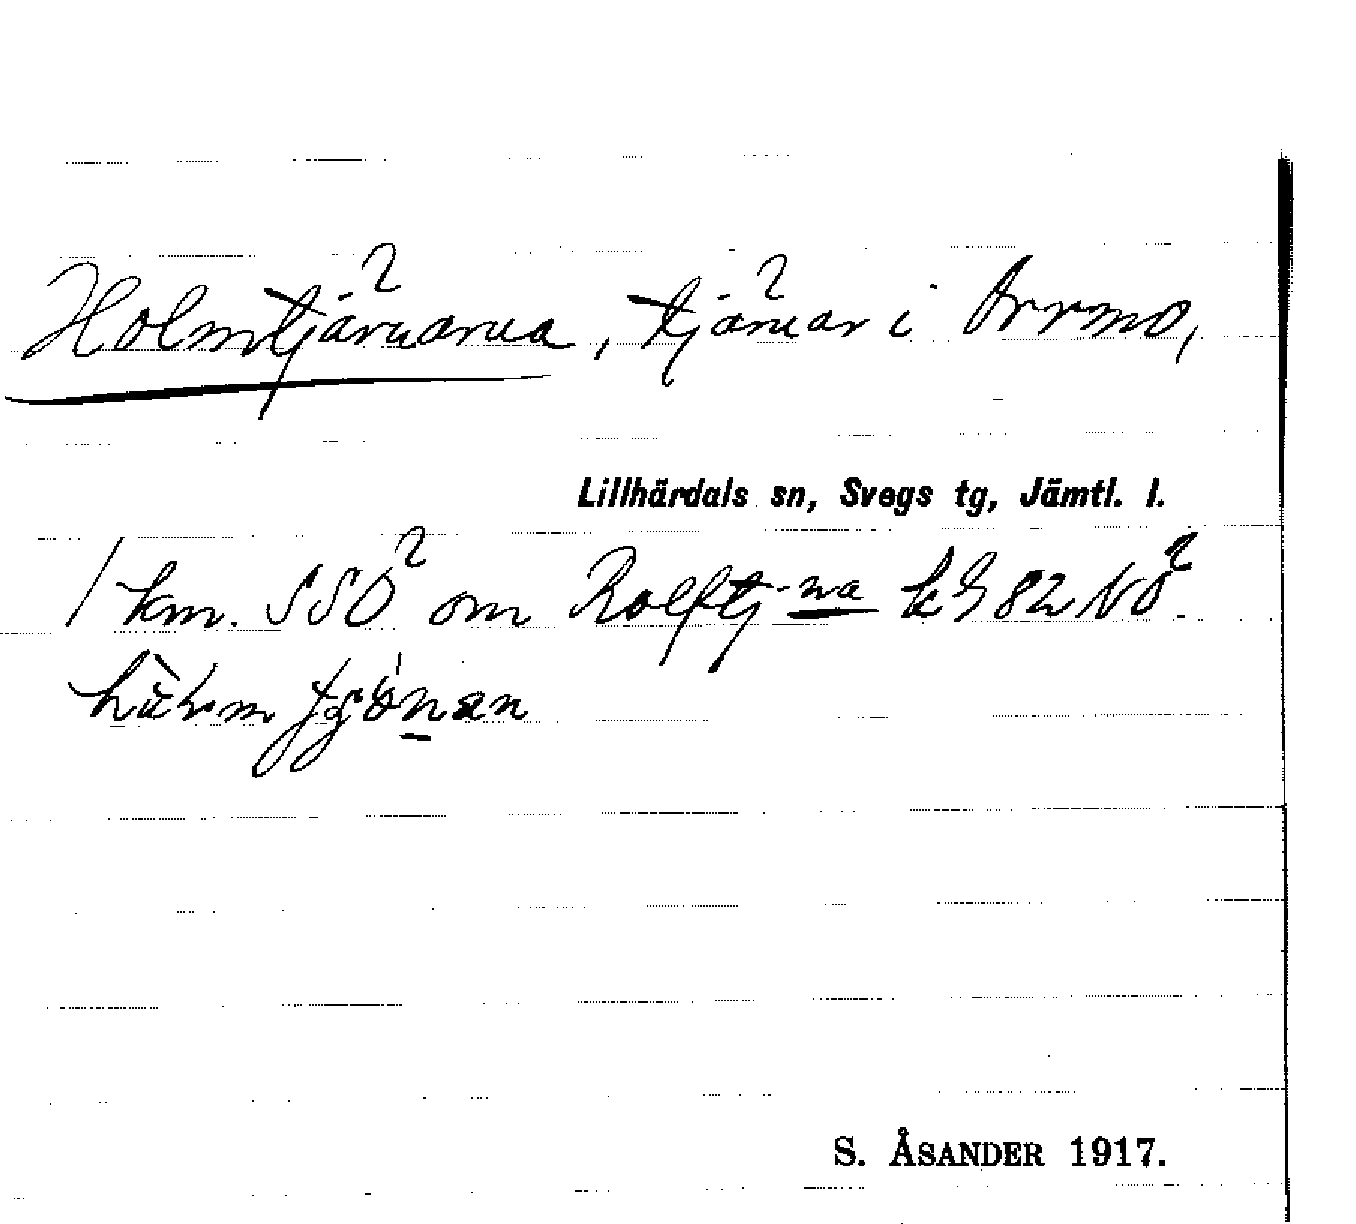 Holmtjärnarna, tjärnar i Orrmo,
Lillhärdals sn, Svegs tg, Jämtl. l.
1 km. SSÖ om Rolftj-na k 982 NÖ.
tjönan
S. ÅSANDER 1917.